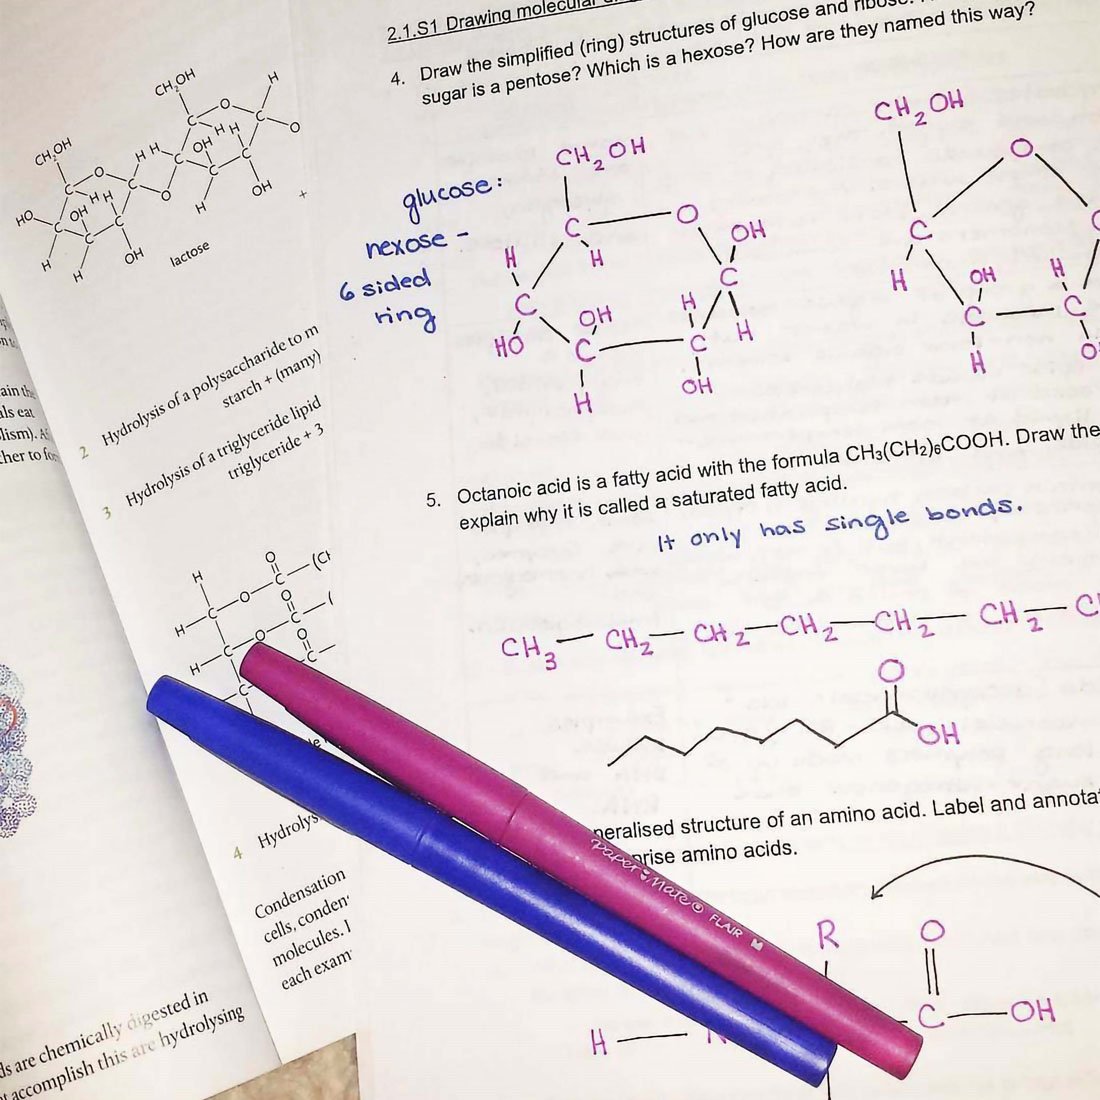 2.1.S1 Drawing molecular
4. Draw the simplified (ring) structures of glucose and ribose.
sugar is a pentose? Which is a hexose? How are they named this way?
glucose:
hexose -
6 sided
ring
CH₂OH
O
C
H
OH
H
C
C
H
OH
H
HO
C
C
H
H
OH
CH₂OH
O
C
H
OH
H
C
C
H
5. Octanoic acid is a fatty acid with the formula CH₃(CH₂)₆COOH. Draw the
explain why it is called a saturated fatty acid.
It only has single bonds.
CH₃—CH₂—CH₂—CH₂—CH₂—CH₂—C
O
OH
neralised structure of an amino acid. Label and annota
prise amino acids.
R
O
H—N
C—OH
Paper Mate® FLAIR M
CH₂OH
H
CH₂OH
O
C
C
H H
OH
H H
O
C
C
O
C
C
O
HO
C
OH
H H
C
H
OH
C
C
H
H
OH
+
lactose
2 Hydrolysis of a polysaccharide to m
starch + (many)
3 Hydrolysis of a triglyceride lipid
triglyceride + 3
H
O
H—C—O—C—(CH
O
H—C—O—C—(
O
C
C—
4 Hydrolys
Condensation
cells, conden
molecules. I
each exam
ain the
als eat
lism). A
ther to for
ds are chemically digested in
t accomplish this are hydrolysing